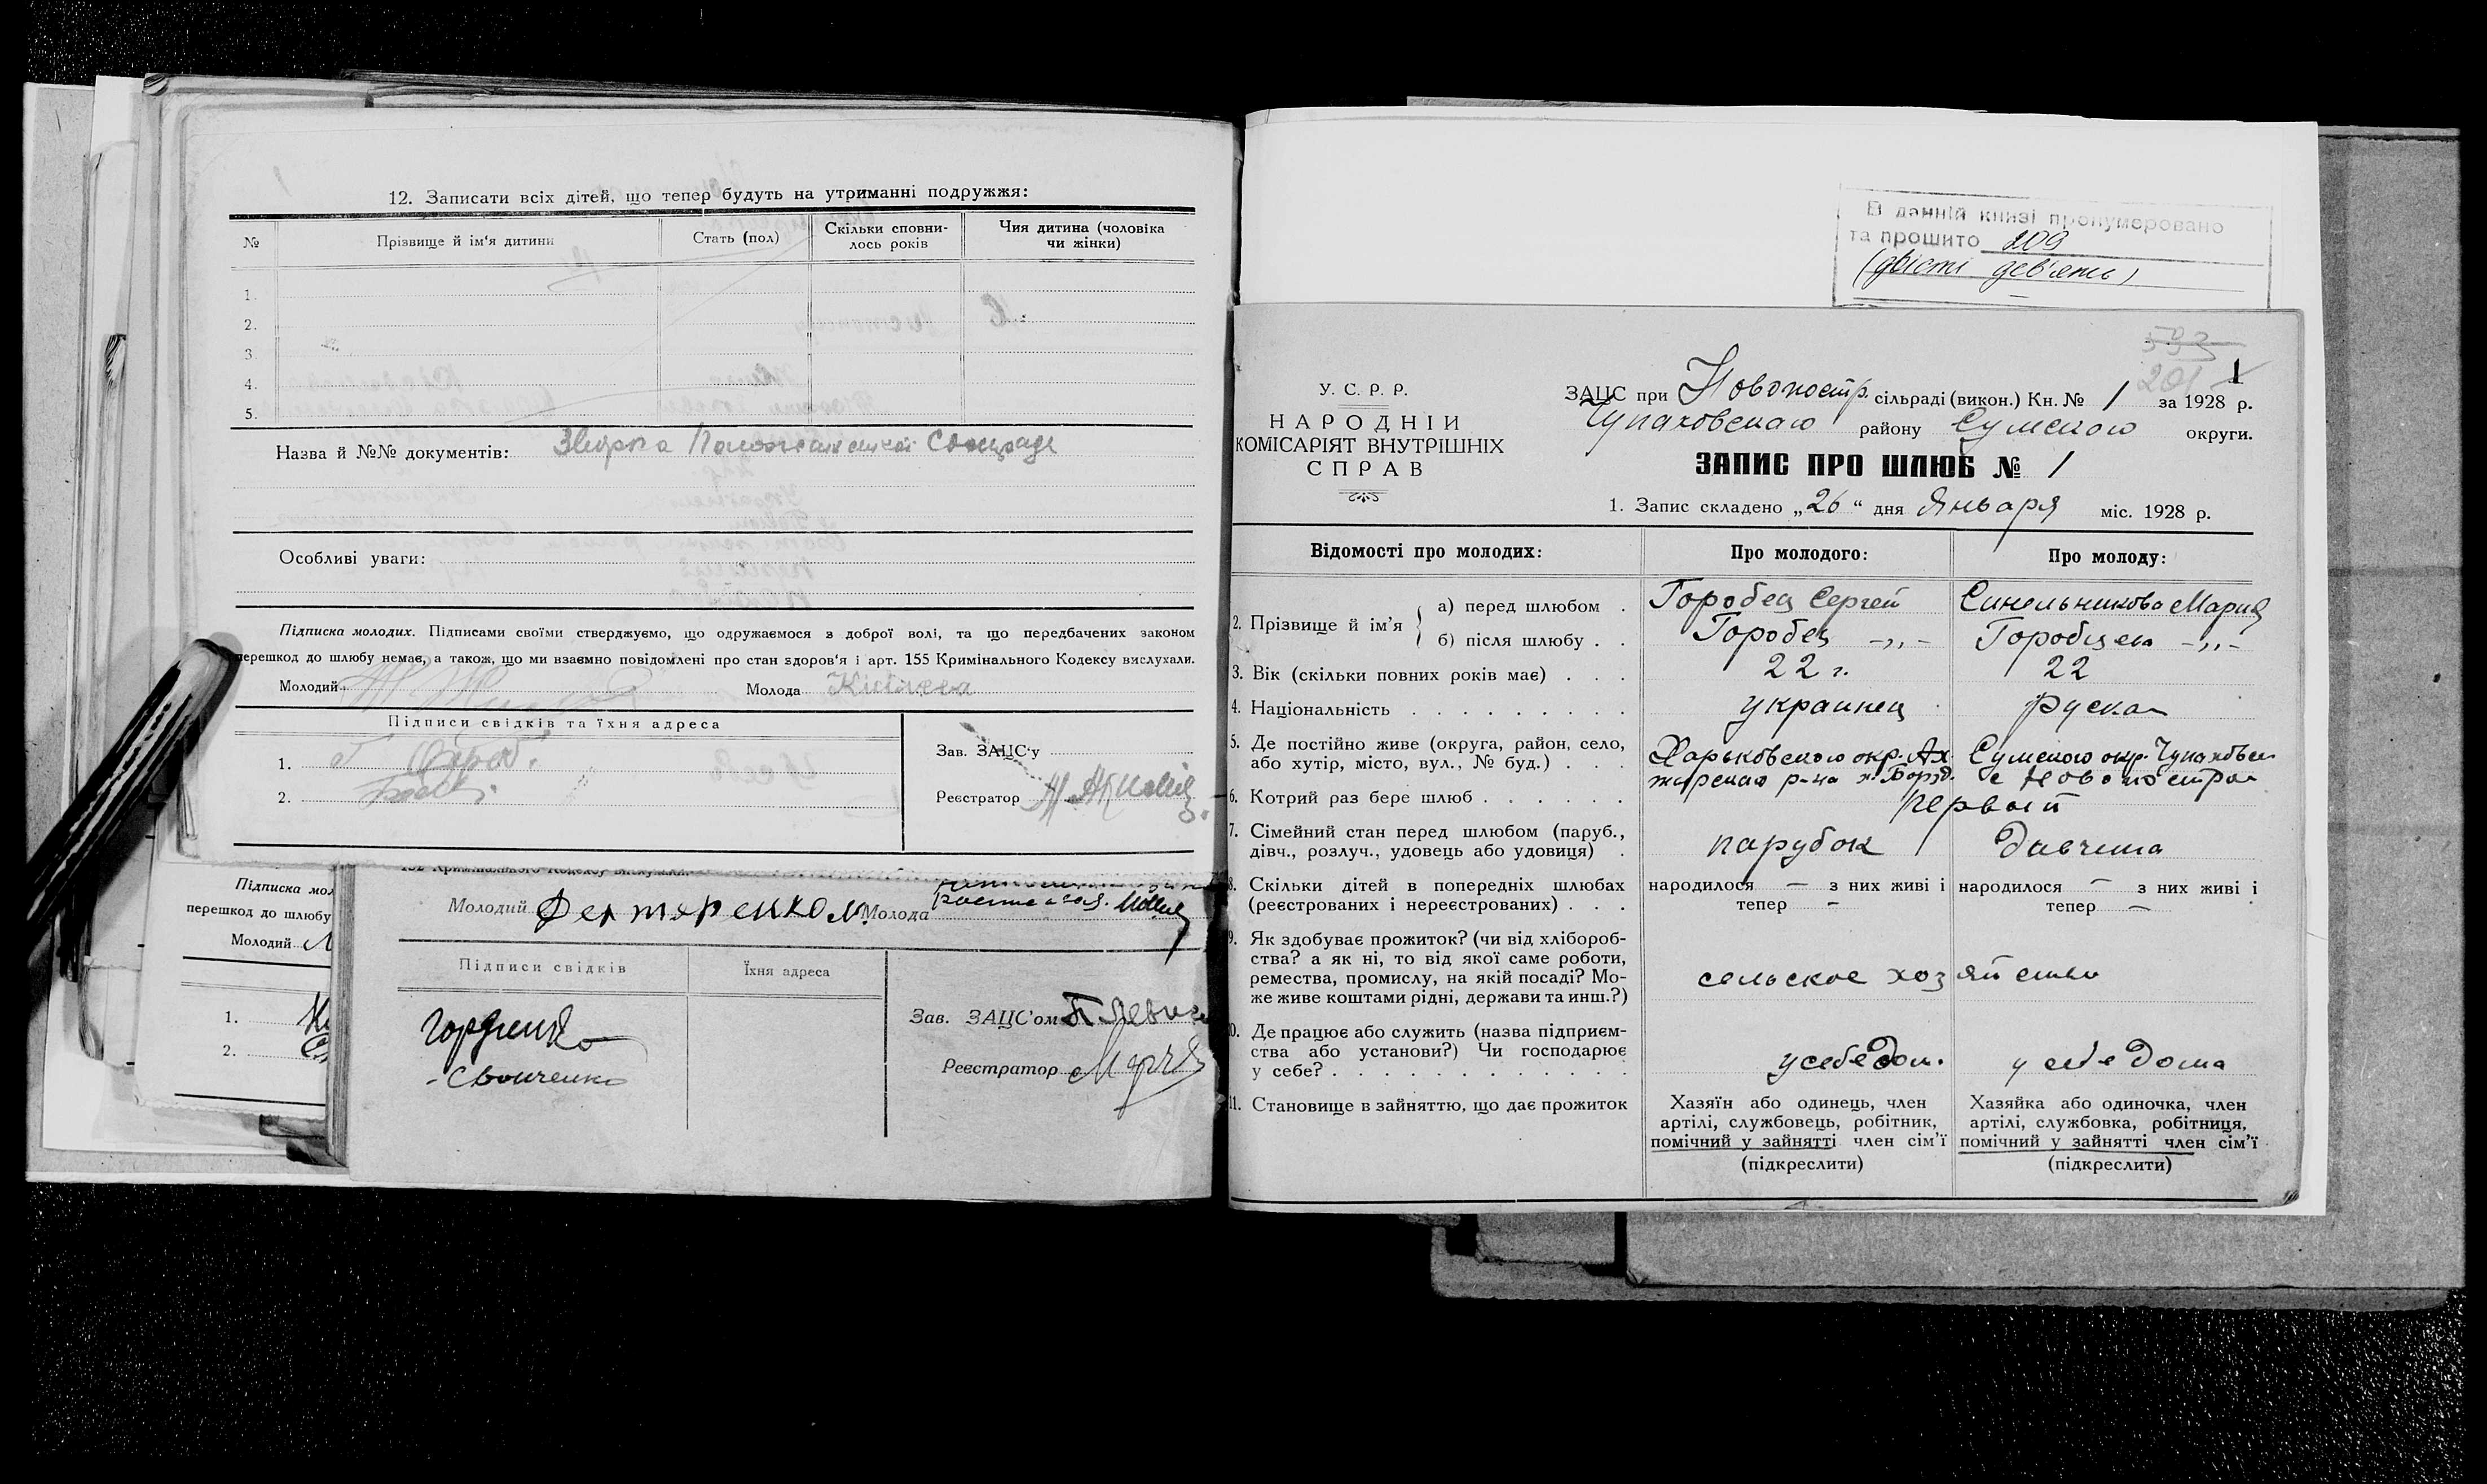 12. Записати всіх дітей, що тепер будуть на утриманні подружжя:
№ Прізвище й ім'я дитини Стать (пол) Скільки сповнилось років Чия дитина (чоловіка чи жінки)
1.
2.
3
4.
5.
Назва й №№ документів:
Особливі уваги:
Підписка молодих. Підписами своїми стверджуємо, що одружаємося з доброї волі, та що передбачених законом
перешкод до шлюбу немає, а також, що ми взаємно повідомлені про стан здоров'я і арт. 155 Кримінального Кодексу вислухали.
Молодий Молода
Підписи свідків та їхня адреса
1.
2.
Зав. ЗАЦС'у
Реєстратор
Підписка мол
перешкод до шлюбу
Молодий
1.
2.
Молодий Молода
Підписи свідків Їхня адреса
Зав. ЗАЦС'ом
Реєстратор
В данній книзі пронумеровано
та прошито 209
(двісті дев'ять)
593
201
1
У. С. Р. Р.
НАРОДНІЙ
КОМІСАРІЯТ ВНУТРІШНІХ
СПРАВ
ЗАЦС при Новопостр. сільраді (викон.) Кн. № 1 за 1928 р.
Чупаховского району Сумского округи.
ЗАПИС ПРО ШЛЮБ № 1
1. Запис складено „26“ дня Января міс. 1928 р.
Відомості про молодих: Про молодого: Про молоду:
2. Прізвище й ім'я
а) перед шлюбом . Горобец Сергей Синельникова Мария
б) після шлюбу . . Горобец -„- Горобцева -„-
3. Вік (скільки повних років має) . . . 22 г. 22
4. Національність . . . . . . . . . украинец руская
5. Де постійно живе (округа, район, село, Харьковского окр. Ах Сумского окр. Чупаховск
або хутір, місто, вул., № буд.) . . . тырского р-на с Новопостро
6. Котрий раз бере шлюб . . . . . . первый
7. Сімейний стан перед шлюбом (паруб.,
дівч., розлуч., удовець або удовиця) . парубок дивчина
8. Скільки дітей в попередніх шлюбах народилося — з них живі і народилося — з них живі і
(реєстрованих і нереєстрованих) . . . тепер — тепер —
9. Як здобуває прожиток? (чи від хлібороб-
ства? а як ні, то від якої саме роботи,
ремества, промислу, на якій посаді? Мо- сельское хозяйство
же живе коштами рідні, держави та инш.?)
10. Де працює або служить (назва підприєм-
ства або установи?) Чи господарює
у себе? . . . . . . . . . . . . . у себе дом. у себе дома
11. Становище в зайняттю, що дає прожиток Хазяїн або одинець, член Хазяйка або одиночка, член
артілі, службовець, робітник, артілі, службовка, робітниця,
помічний у зайнятті член сім'ї помічний у зайнятті член сім'ї
(підкреслити) (підкреслити)